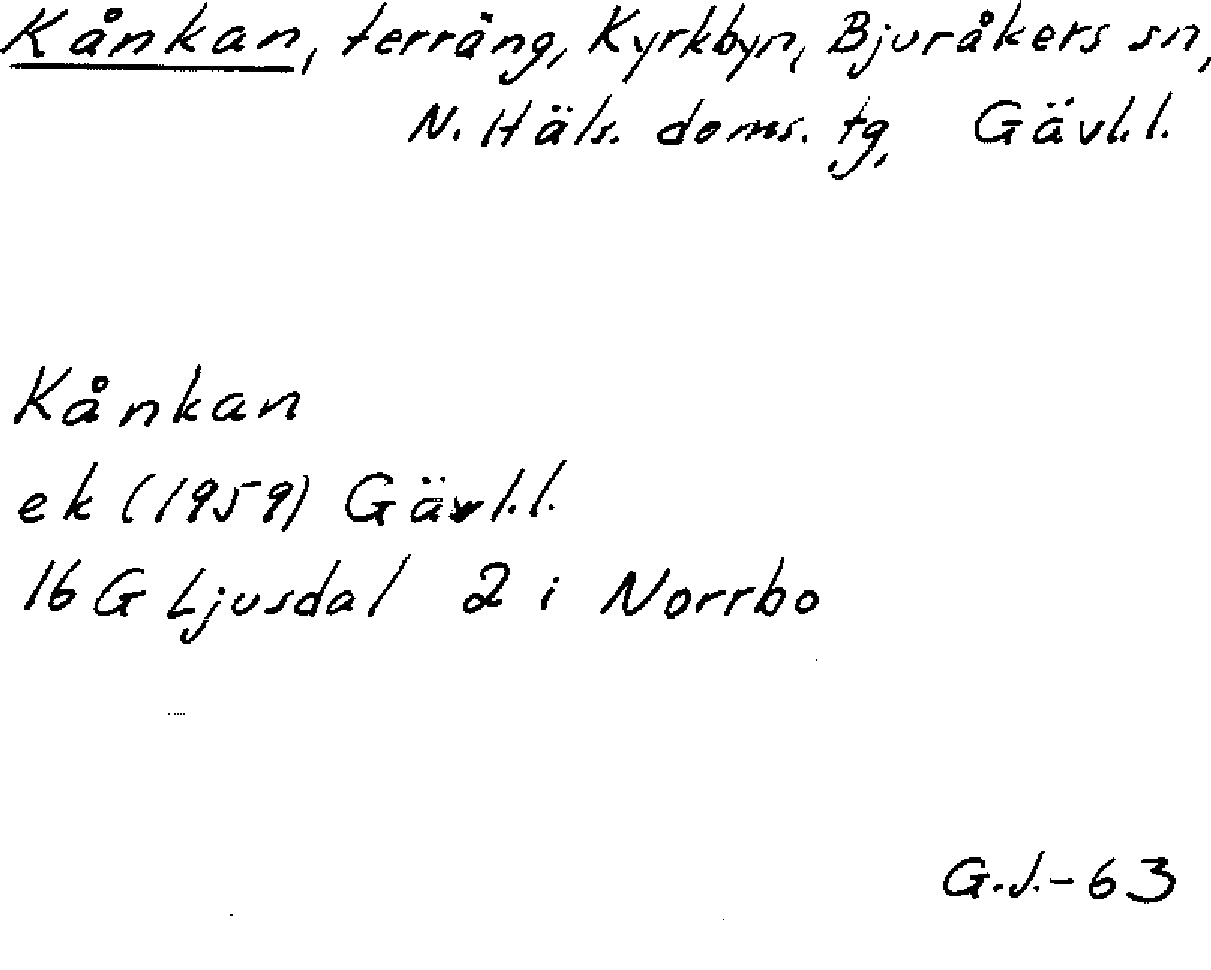 Kånkan, terräng, Kyrkbyn, Bjuråkers sn,
N. Häls. doms. tg, Gävl.l.
Kånkan
ek (1959) Gävl.l.
16 G Ljusdal 2 i Norrbo
G.J.-63